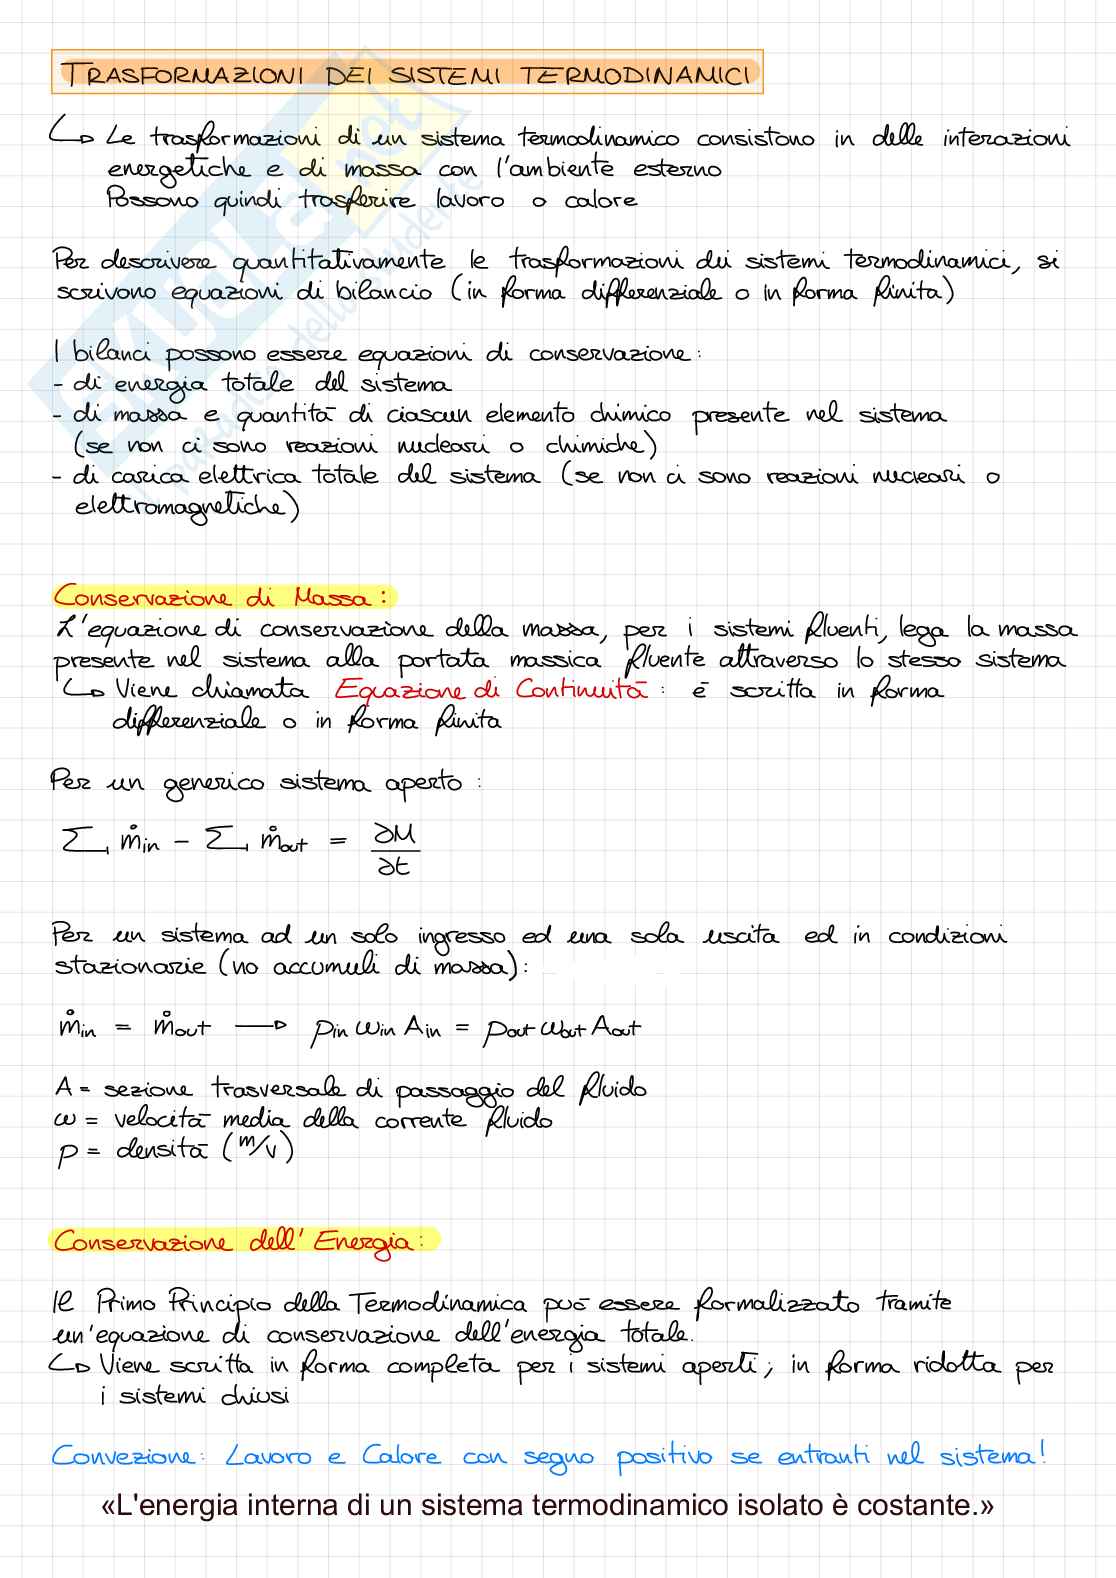 TRASFORMAZIONI DEI SISTEMI TERMODINAMICI
↳ Le trasformazioni di un sistema termodinamico consistono in delle interazioni
energetiche e di massa con l'ambiente esterno
Possono quindi trasferire lavoro o calore
Per descrivere quantitativamente le trasformazioni dei sistemi termodinamici, si
scrivono equazioni di bilancio (in forma differenziale o in forma finita)
I bilanci possono essere equazioni di conservazione:
- di energia totale del sistema
- di massa e quantità di ciascun elemento chimico presente nel sistema
(se non ci sono reazioni nucleari o chimiche)
- di carica elettrica totale del sistema (se non ci sono reazioni nucleari o
elettromagnetiche)
Conservazione di Massa:
L'equazione di conservazione della massa, per i sistemi fluenti, lega la massa
presente nel sistema alla portata massica fluente attraverso lo stesso sistema
↳ Viene chiamata Equazione di Continuità: è scritta in forma
differenziale o in forma finita
Per un generico sistema aperto:
∑ ṁin - ∑ ṁout = ∂M/∂t
Per un sistema ad un solo ingresso ed una sola uscita ed in condizioni
stazionarie (no accumuli di massa):
ṁin = ṁout → ρin ωin Ain = ρout ωout Aout
A = sezione trasversale di passaggio del fluido
ω = velocità media della corrente fluido
ρ = densità (m/v)
Conservazione dell'Energia:
Il Primo Principio della Termodinamica può essere formalizzato tramite
un'equazione di conservazione dell'energia totale.
↳ Viene scritta in forma completa per i sistemi aperti; in forma ridotta per
i sistemi chiusi
Convezione: Lavoro e Calore con segno positivo se entranti nel sistema!
«L'energia interna di un sistema termodinamico isolato è costante.»